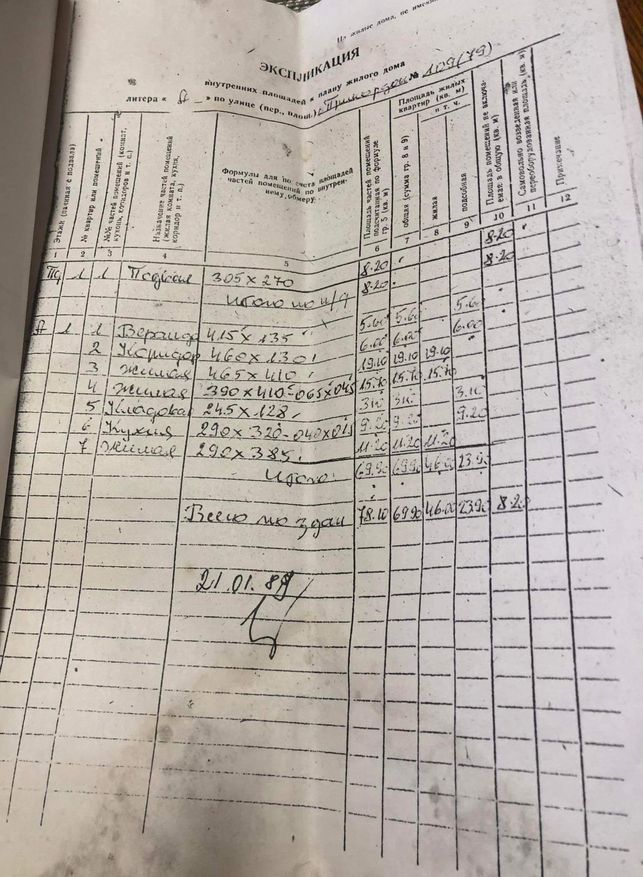 На жилые дома, не имею
ЭКСПЛИКАЦИЯ
внутренних площадей к плану жилого дома
литера « А » по улице (пер., площ.) № 109(79)
Этажи (начиная с подвала)
№ квартир или помещений
№№ частей помещений (комнат, кухонь, коридоров и т. с.)
Назначение частей помещений (жилая комната, кухня, коридор и т. п.)
Формулы для подсчета площадей частей помещений по внутреннему обмеру
Площадь частей помещений подсчитанная по формуле гр. 5 (кв. м)
Площадь жилых квартир (кв. м)
общая (сумма гр. 8 и 9)
в т. ч.
жилая
подсобная
Площадь помещений не включаемая в общую (кв. м)
Самовольно возведенная или переоборудованная площадь (кв. м)
Примечание
1 2 3 4 5 6 7 8 9 10 11 12
Пд 1 1 Подвал 305×270 8.20 8.20
Итого по п/д 8.20 8.20
А 1 1 Веранда 415×135 5.60 5.60 5.60
2 Коридор 460×130 6.00 6.00 6.00
3 Жилая 465×410 19.10 19.10 19.10
4 Жилая 390×410-065×045 15.70 15.70 15.70
5 Кладовая 245×128 3.10 3.10 3.10
6 Кухня 290×320-040×015 9.20 9.20 9.20
7 Жилая 290×385 11.20 11.20 11.20
Итого: 69.90 69.90 46.00 23.90
Всего по здан 78.10 69.90 46.00 23.90 8.20
21.01.89